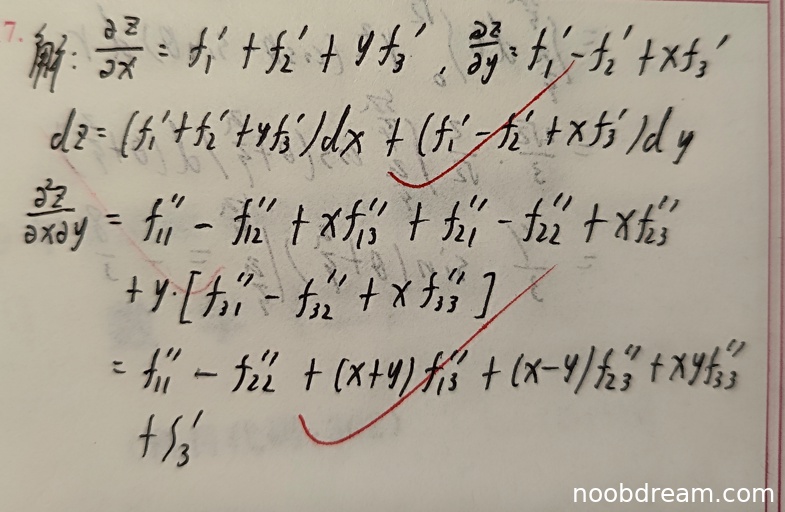 7. 解: ∂z/∂x = f₁′ + f₂′ + y f₃′, ∂z/∂y = f₁′ - f₂′ + x f₃′
dz = (f₁′ + f₂′ + y f₃′)dx + (f₁′ - f₂′ + x f₃′)dy
∂²z/∂x∂y = f₁₁″ - f₁₂″ + x f₁₃″ + f₂₁″ - f₂₂″ + x f₂₃″
+ y·[f₃₁″ - f₃₂″ + x f₃₃″]
= f₁₁″ - f₂₂″ + (x+y) f₁₃″ + (x-y) f₂₃″ + xy f₃₃″
+ f₃′
noobdream.com